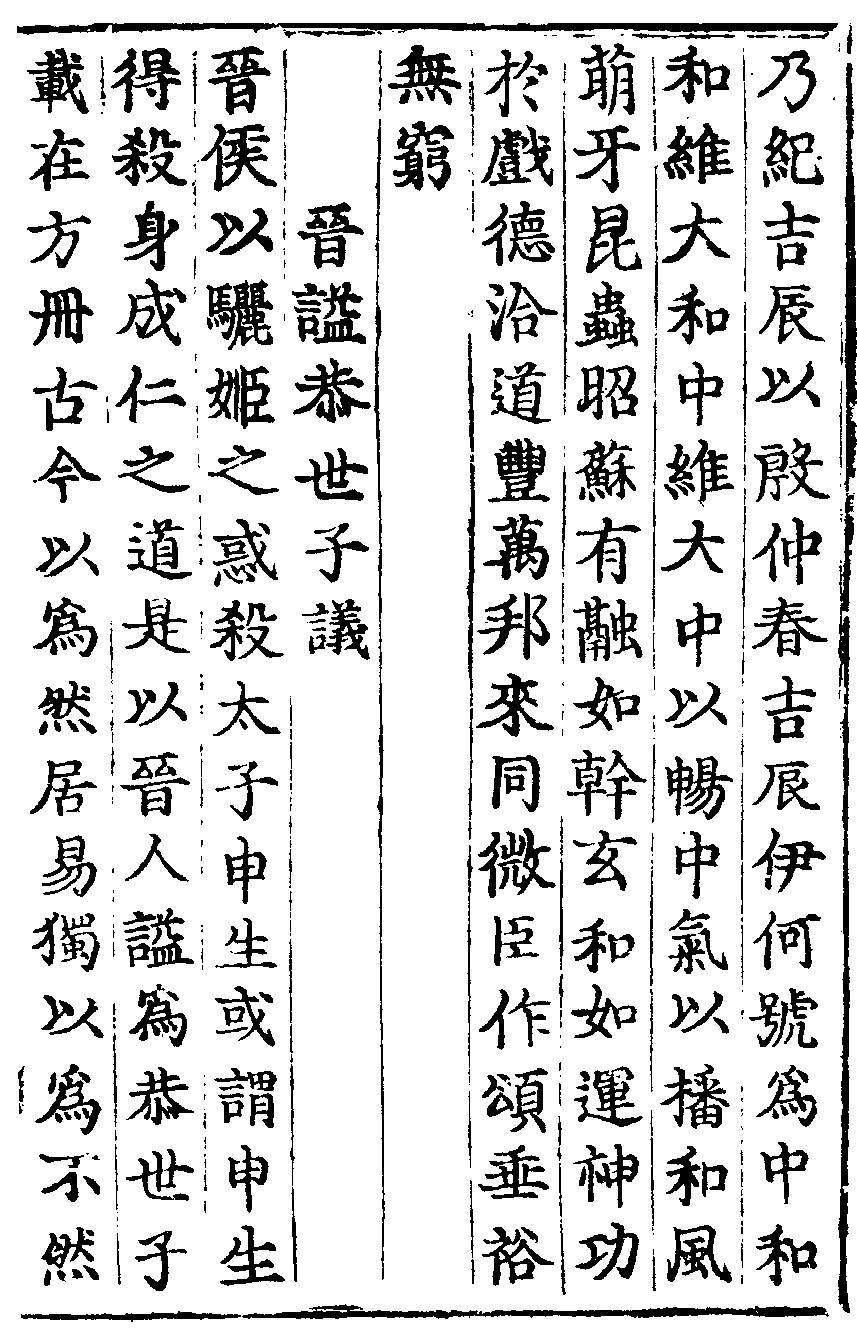 乃紀吉辰以殷仲春吉辰伊何號爲中和
和維大和中維大中以暢中氣以播和風
萌牙昆蟲昭蘇有融如幹玄和如運神功
於戲德洽道豐萬邦來同微臣作頌垂裕
無窮
晉謚恭世子議
晉侯以驪姬之惑殺太子申生或謂申生
得殺身成仁之道是以晉人謚爲恭世子
載在方冊古今以爲然居易獨以爲不然